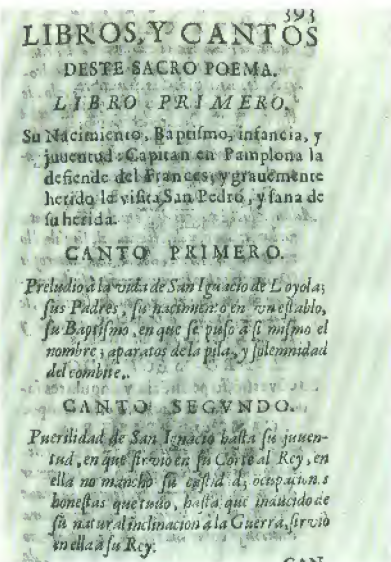 393
LIBROS, Y CANTOS
DESTE SACRO POEMA.
LIBRO PRIMERO.
Su Nacimiento, Baptismo, infancia, y
juuentud: Capitan en Pamplona la
defiende del Frances, y grauemente
herido le visita San Pedro, y sana de
su herida.
CANTO PRIMERO.
Preludio à la vida de San Ignacio de Loyola;
sus Padres, su nacimiento en vn establo,
su Baptismo, en que se puso à si mismo el
nombre; aparatos de la pila, y solemnidad
del combite.
CANTO SEGVNDO.
Puerilidad de San Ignacio hasta su juuen-
tud, en que siruio en su Corte al Rey, en
ella no manchò su castidad; ocupaciones
honestas que tuuo, hasta que inducido de
su natural inclinacion à la Guerra, siruiò
en ella à su Rey.
CAN-